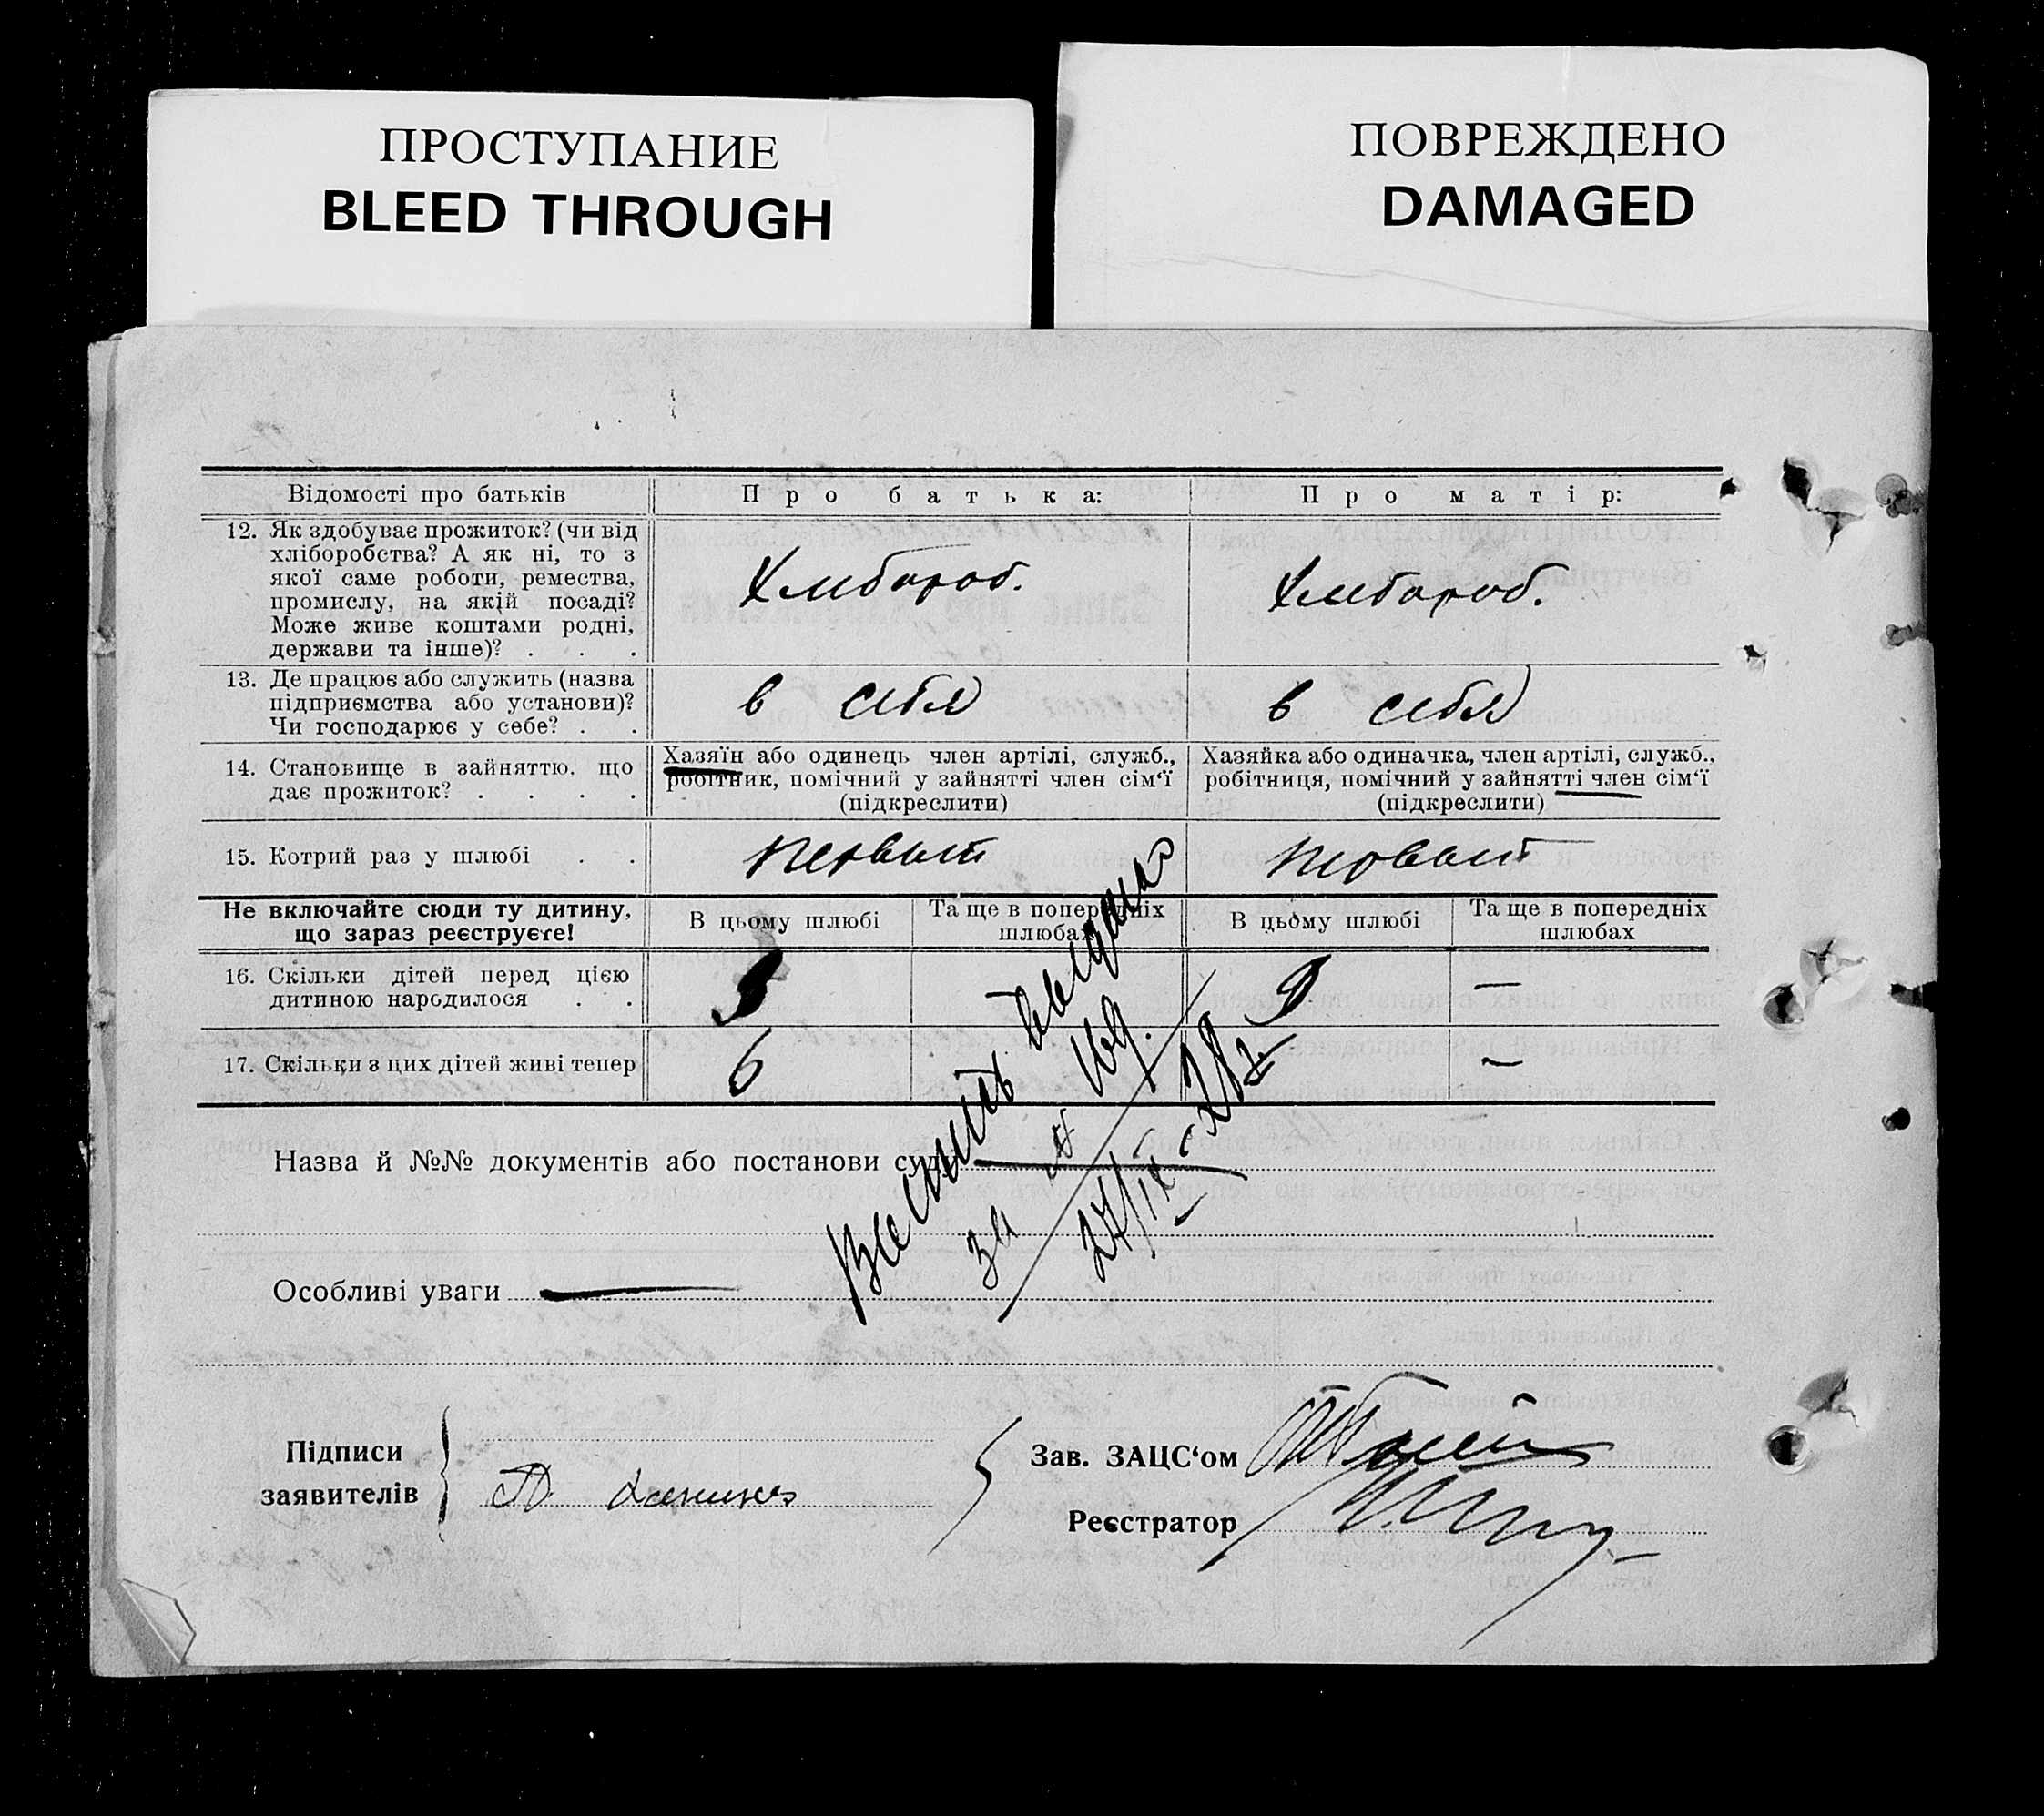 ПРОСТУПАНИЕ
BLEED THROUGH
ПОВРЕЖДЕНО
DAMAGED
Відомості про батьків
Про батька:
Про матір:
12. Як здобуває прожиток? (чи від
хліборобства? А як ні, то з
якої саме роботи, ремества,
промислу, на якій посаді?
Може живе коштами родні,
держави та інше)? . . .
Хлибороб.
Хлибороб.
13. Де працює або служить (назва
підприємства або установи)?
Чи господарює у себе? . .
в себя
в себя
14. Становище в зайняттю, що
дає прожиток? . . . .
Хазяїн або одинець член артілі, служб.,
робітник, помічний у зайнятті член сім‘ї
(підкреслити)
Хазяйка або одиначка, член артілі, служб.,
робітниця, помічний у зайнятті член сім‘ї
(підкреслити)
15. Котрий раз у шлюбі . .
первый
первый
Не включайте сюди ту дитину,
що зараз реєструєте!
В цьому шлюбі
Та ще в попередніх
шлюбах
В цьому шлюбі
Та ще в попередніх
шлюбах
16. Скільки дітей перед цією
дитиною народилося . .
9
9
—
17. Скільки з цих дітей живі тепер
6
6
—
Назва й №№ документів або постанови суду
за №
27/IX-28 г.
Особливі уваги
Підписи
заявителів
Зав. ЗАЦС‘ом
Реєстратор